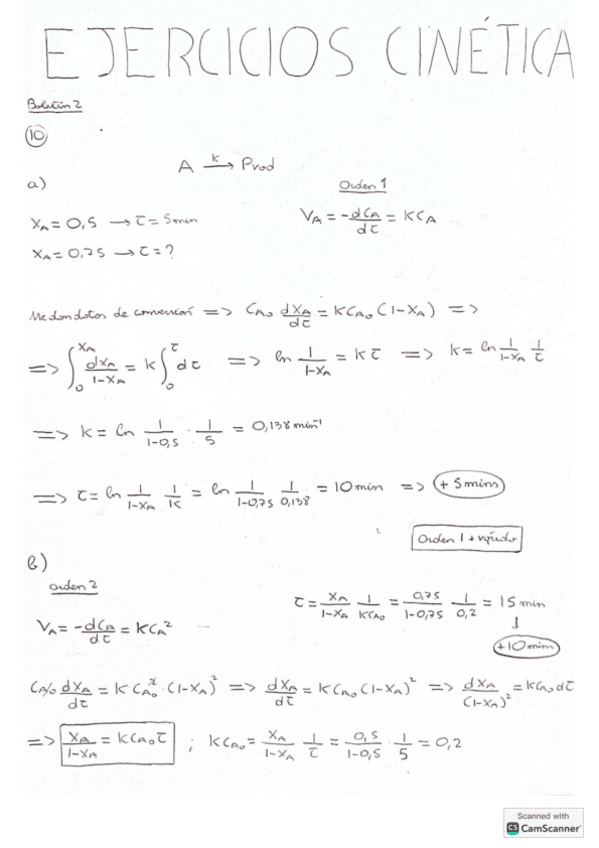 EJERCICIOS CINÉTICA
Boletín 2
10
A —k→ Prod
a)
Orden 1
X_A = 0,5 → τ = 5 min
V_A = -dC_A/dτ = KC_A
X_A = 0,75 → τ = ?
Me dan datos de conversión => C_A0 dX_A/dτ = KC_A0 (1-X_A) =>
=> ∫₀^(X_A) dX_A/(1-X_A) = k ∫₀^τ dτ => ln 1/(1-X_A) = Kτ => k = ln 1/(1-X_A) 1/τ
=> k = ln 1/(1-0,5) · 1/5 = 0,138 min⁻¹
=> τ = ln 1/(1-X_A) 1/K = ln 1/(1-0,75) 1/0,138 = 10 min => +5 mins
Orden 1 + rápido
b)
Orden 2
τ = X_A/(1-X_A) 1/KC_A0 = 0,75/(1-0,75) 1/0,2 = 15 min
↓
+10 mins
V_A = -dC_A/dτ = KC_A²
C_A0 dX_A/dτ = K C_A0² · (1-X_A)² => dX_A/dτ = KC_A0 (1-X_A)² => dX_A/(1-X_A)² = KC_A0 dτ
=> X_A/(1-X_A) = KC_A0 τ ; KC_A0 = X_A/(1-X_A) 1/τ = 0,5/(1-0,5) · 1/5 = 0,2
Scanned with
CS CamScanner